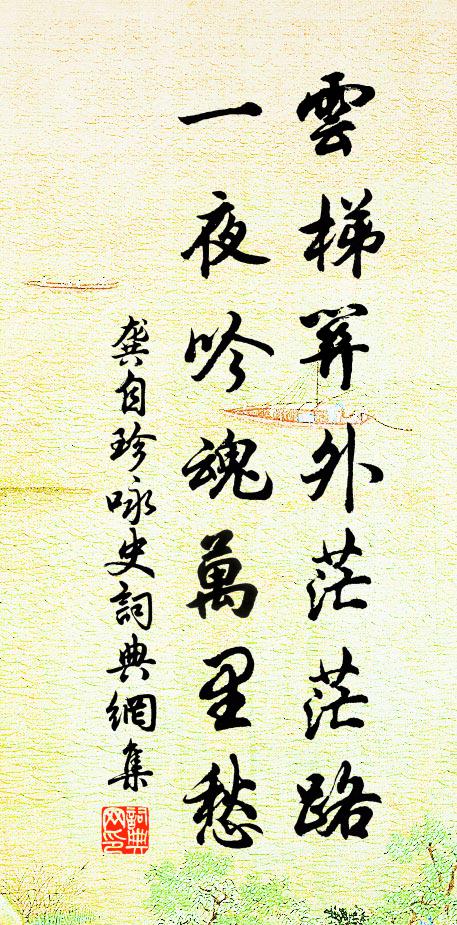 雲梯關外茫茫路
一夜吟魂萬里愁
龔自珍咏史詞典網集
詞典网印